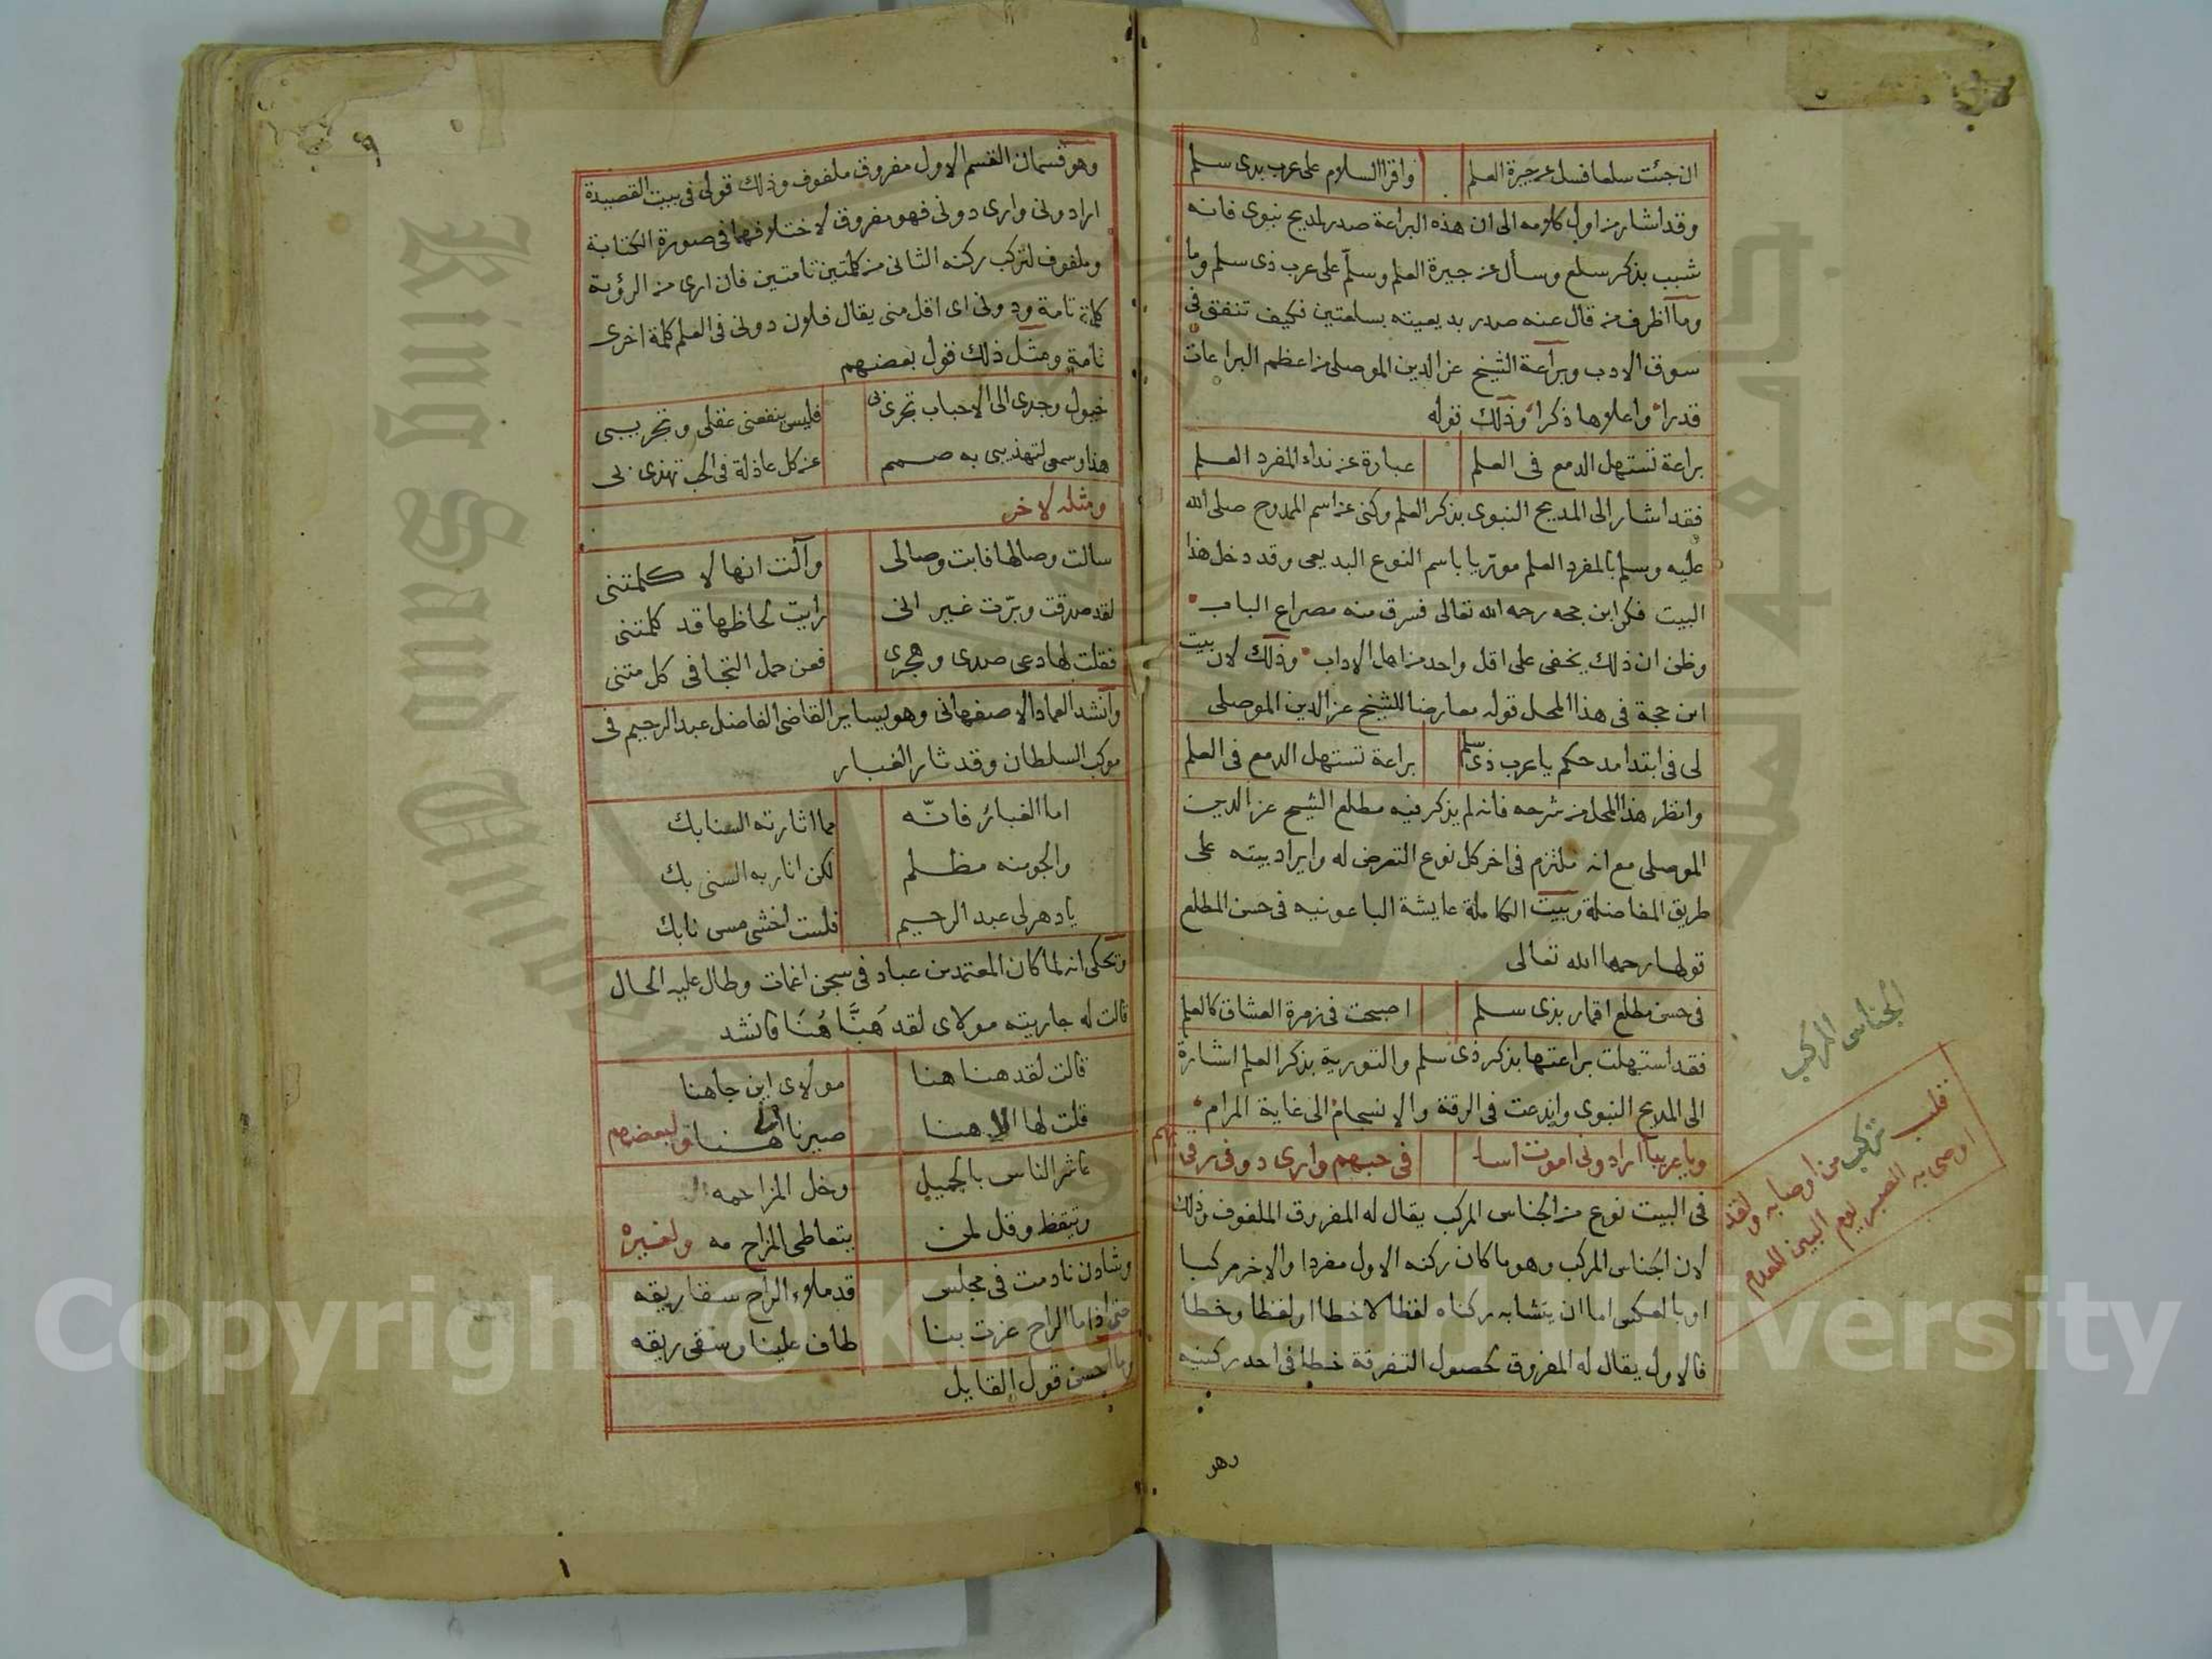 ان جئت سلعا فسل عن جيرة العلم واقرا السلام على عرب بدى سلم
وقد اشار من اول كلامه الى ان هذه البراعة صدر لمديح نبوى فانه
شبب بذكر سلع وسأل عن جيرة العلم وسلّم على عرب ذى سلم وما
وما اظرف من قال عنه صدر بديعيته بسلعتين فكيف تنفق فى
سوق الادب وبراعة الشيخ عز الدين الموصلى من اعظم البراعات
قدرا واعلاها ذكرا وذلك قوله
براعة تستهل الدمع فى العلم عبارة عن نداء المفرد العلم
فقد اشار الى المديح النبوى بذكر العلم وكنى عن اسم الممدوح صلى الله
عليه وسلم بالمفرد العلم مورّيا باسم النوع البديعى وقد دخل هذا
البيت فكر ابن حجه رحمه الله تعالى فسرق منه مصراع الباب
وظن ان ذلك يخفى على اقل واحد من اهل الاداب وذلك لان بيت
ابن حجة فى هذا المحل قوله معارضا للشيخ عز الدين الموصلى
لى فى ابتدا مدحكم يا عرب ذى سلم براعة تستهل الدمع فى العلم
وانظر هذا المحل من شرحه فانه لم يذكر فيه مطلع الشيخ عز الدين
الموصلى مع انه ملتزم فى اخر كل نوع التعرض له وايراد بيته على
طريق المفاضلة وبيت الكاملة عايشة الباعونيه فى حسن المطلع
قولها رحمها الله تعالى
فى حسن مطلع اقمار بذى سلم اصبحت فى زمرة العشاق كالعلم
فقد استهلت براعتها بذكر ذى سلم والتورية بذكر العلم اشارة
الى المديح النبوى وابدعت فى الرقة والانسجام الى غاية المرام
ويا عريبا ارادونى اموت اسا فى حبهم وارى دونى رقى
فى البيت نوع من الجناس المركب يقال له المفروق الملفوف وذلك
لان الجناس المركب وهو ما كان ركنه الاول مفردا والاخر مركبا
او بالعكس اما ان يتشابه ركناه لفظا لا خطا او لفظا وخطا
فالاول يقال له المفروق لحصول التفرقة خطا فى احد ركنيه
وهو
الجناس المركب
فلب تركب من اوصابه ولقد
اوصى به الصبر يوم البين للعدم
٩
وهو قسمان القسم الاول مفروق ملفوف وذلك قولى فى بيت القصيدة
ارادونى وارى دونى فهو مفروق لاختلافهما فى صورة الكتابة
وملفوف لتركب ركنه الثانى من كلمتين تامتين فان ارى من الرؤية
كلمة تامة ودونى اى اقل منى يقال فلان دونى فى العلم كلمة اخرى
تامة ومثل ذلك قول بعضهم
خيول وجدى الى الاحباب تجرى بى فليس ينفعنى عقلى وتجريبى
هذا وسمعى لتهذيبى به صمم عن كل عاذلة فى الحب تهذى بى
ومثله لاخر
سالت وصالها فابت وصالى وآلت انها لا كلمتنى
لقد صدقت وبرّت غير انى رايت لحاظها قد كلمتنى
فقلت لها دعى صدى وهجرى فعن حمل التجافى كل متنى
وانشد العماد الاصفهانى وهو يساير القاضى الفاضل عبد الرحيم فى
موكب السلطان وقد ثار الغبار
اما الغبار فانّه مما اثارته السنابك
والجو منه مظلم لكن انار به السنى بك
يا دهر لى عبد الرحيم فلست اخشى مس نابك
وتحكى انه لما كان المعتمد بن عباد فى سجن اغمات وطال عليه الحال
قالت له جاريته مولاى لقد هَنَّا هُنَا فانشد
قالت لقد هنا هنا مولاى اين جاهنا
قلت لها الى هنا صيرنا الهنا ولبعضهم
عاشر الناس بالجميل وخل المزاحمه
وتيقظ وقل لمن يتعاطى المزاح مه ولغيره
وشادن نادمت فى مجلس قد ملاء الراح سقا ريقه
حتى اذا ما الراح عزت بنا طاف علينا وسقى ريقه
وما احسن قول القايل
١
King Saud University
Copyright © King Saud University